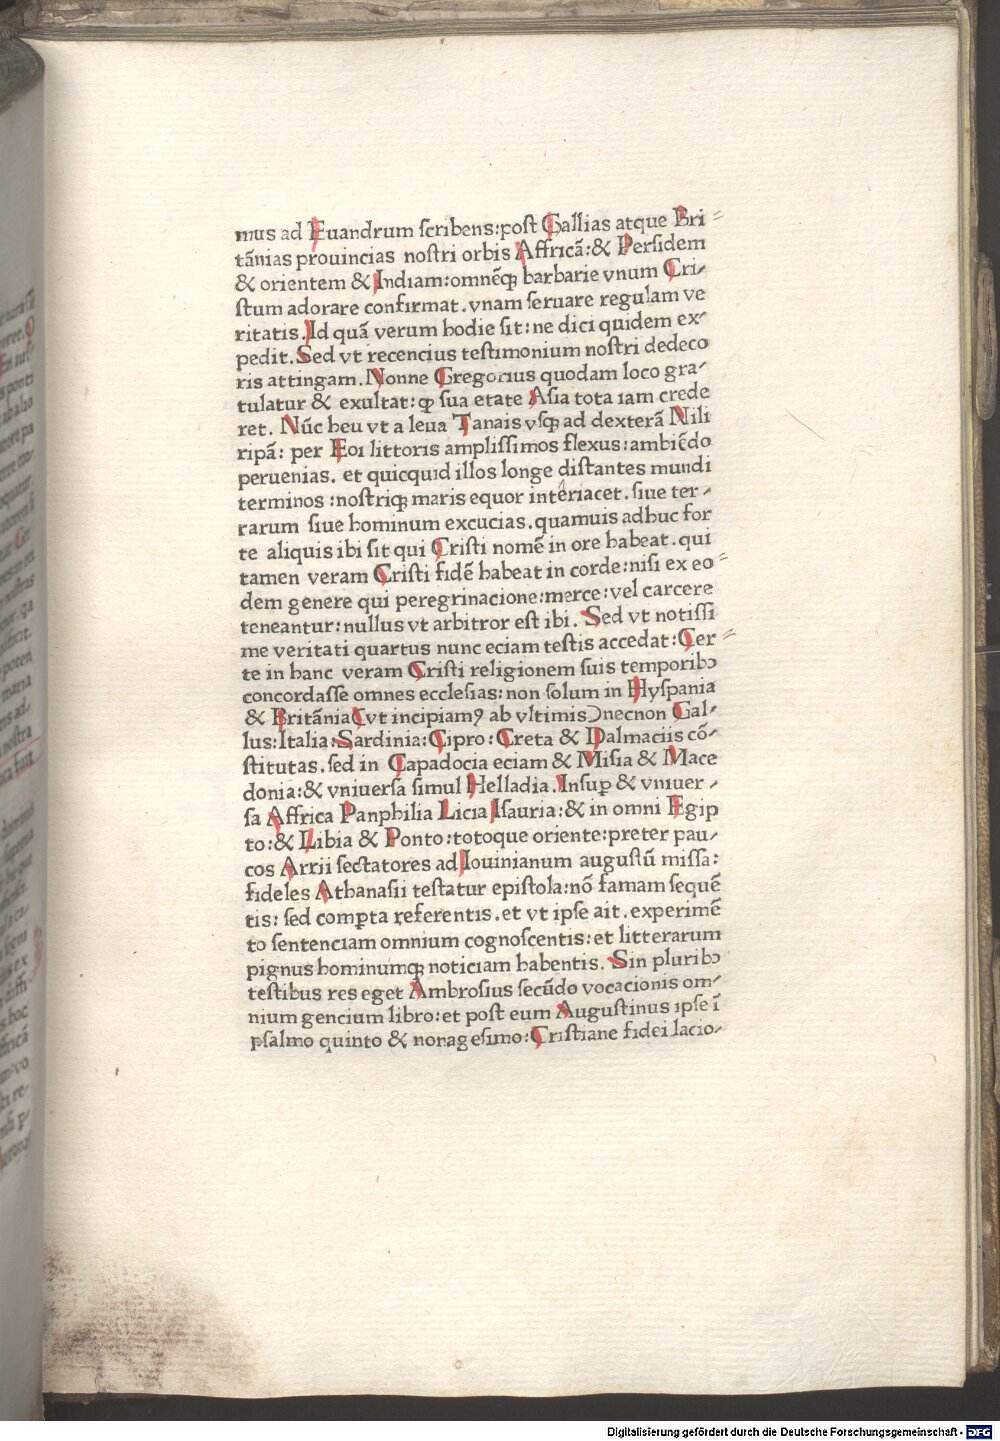 mus ad Euandrum scribens:post Gallias atque Bri⸗
tãnias prouincias nostri orbis Affricã:& Persidem
& orientem & Indiam:omnẽqꝫ barbarie vnum Cri⸗
stum adorare confirmat. vnam seruare regulam ve
ritatis. Id quã verum hodie sit:ne dici quidem ex⸗
pedit. Sed vt recencius testimonium nostri dedeco
ris attingam. Nonne Gregorius quodam loco gra⸗
tulatur & exultat:ꝙ sua etate Asia tota iam crede
ret. Nũc heu vt a leua Tanais vsqꝫ ad dexterã Nili
ripã: per Eoi littoris amplissimos flexus:ambiẽdo
peruenias. et quicquid illos longe distantes mundi
terminos :nostriqꝫ maris equor interiacet. siue ter⸗
rarum siue hominum excucias. quamuis adhuc for
te aliquis ibi sit qui Cristi nomẽ in ore habeat. qui
tamen veram Cristi fidẽ habeat in corde:nisi ex eo⸗
dem genere qui peregrinacione:merce:vel carcere
teneantur:nullus vt arbitror est ibi. Sed vt notissi
me veritati quartus nunc eciam testis accedat:Cer⸗
te in hanc veram Cristi religionem suis temporibꝫ
concordasse omnes ecclesias:non solum in Hyspania
& Britãnia(vt incipiamꝰ ab vltimis)necnon Gal⸗
lus:Italia:Sardinia:Cipro:Creta & Dalmaciis cõ⸗
stitutas. sed in Capadocia eciam & Misia & Mace
donia:& vniuersa simul Helladia. Insuꝑ & vniuer⸗
sa Affrica Panphilia Licia Isauria:& in omni Egip
to:& Libia & Ponto:totoque oriente:preter pau⸗
cos Arrii sectatores ad Iouinianum augustũ missa:
fideles Athanasii testatur epistola:nõ famam sequẽ
tis: sed comꝑta referentis. et vt ipse ait. experimẽ
to sentenciam omnium cognoscentis:et litterarum
pignus hominumqꝫ noticiam habentis. Sin pluribꝫ
testibus res eget Ambrosius secũdo vocacionis om⸗
nium gencium libro:et post eum Augustinus ipse ĩ
psalmo quinto & nonagesimo:Cristiane fidei lacio⸗
Digitalisierung gefördert durch die Deutsche Forschungsgemeinschaft - DFG